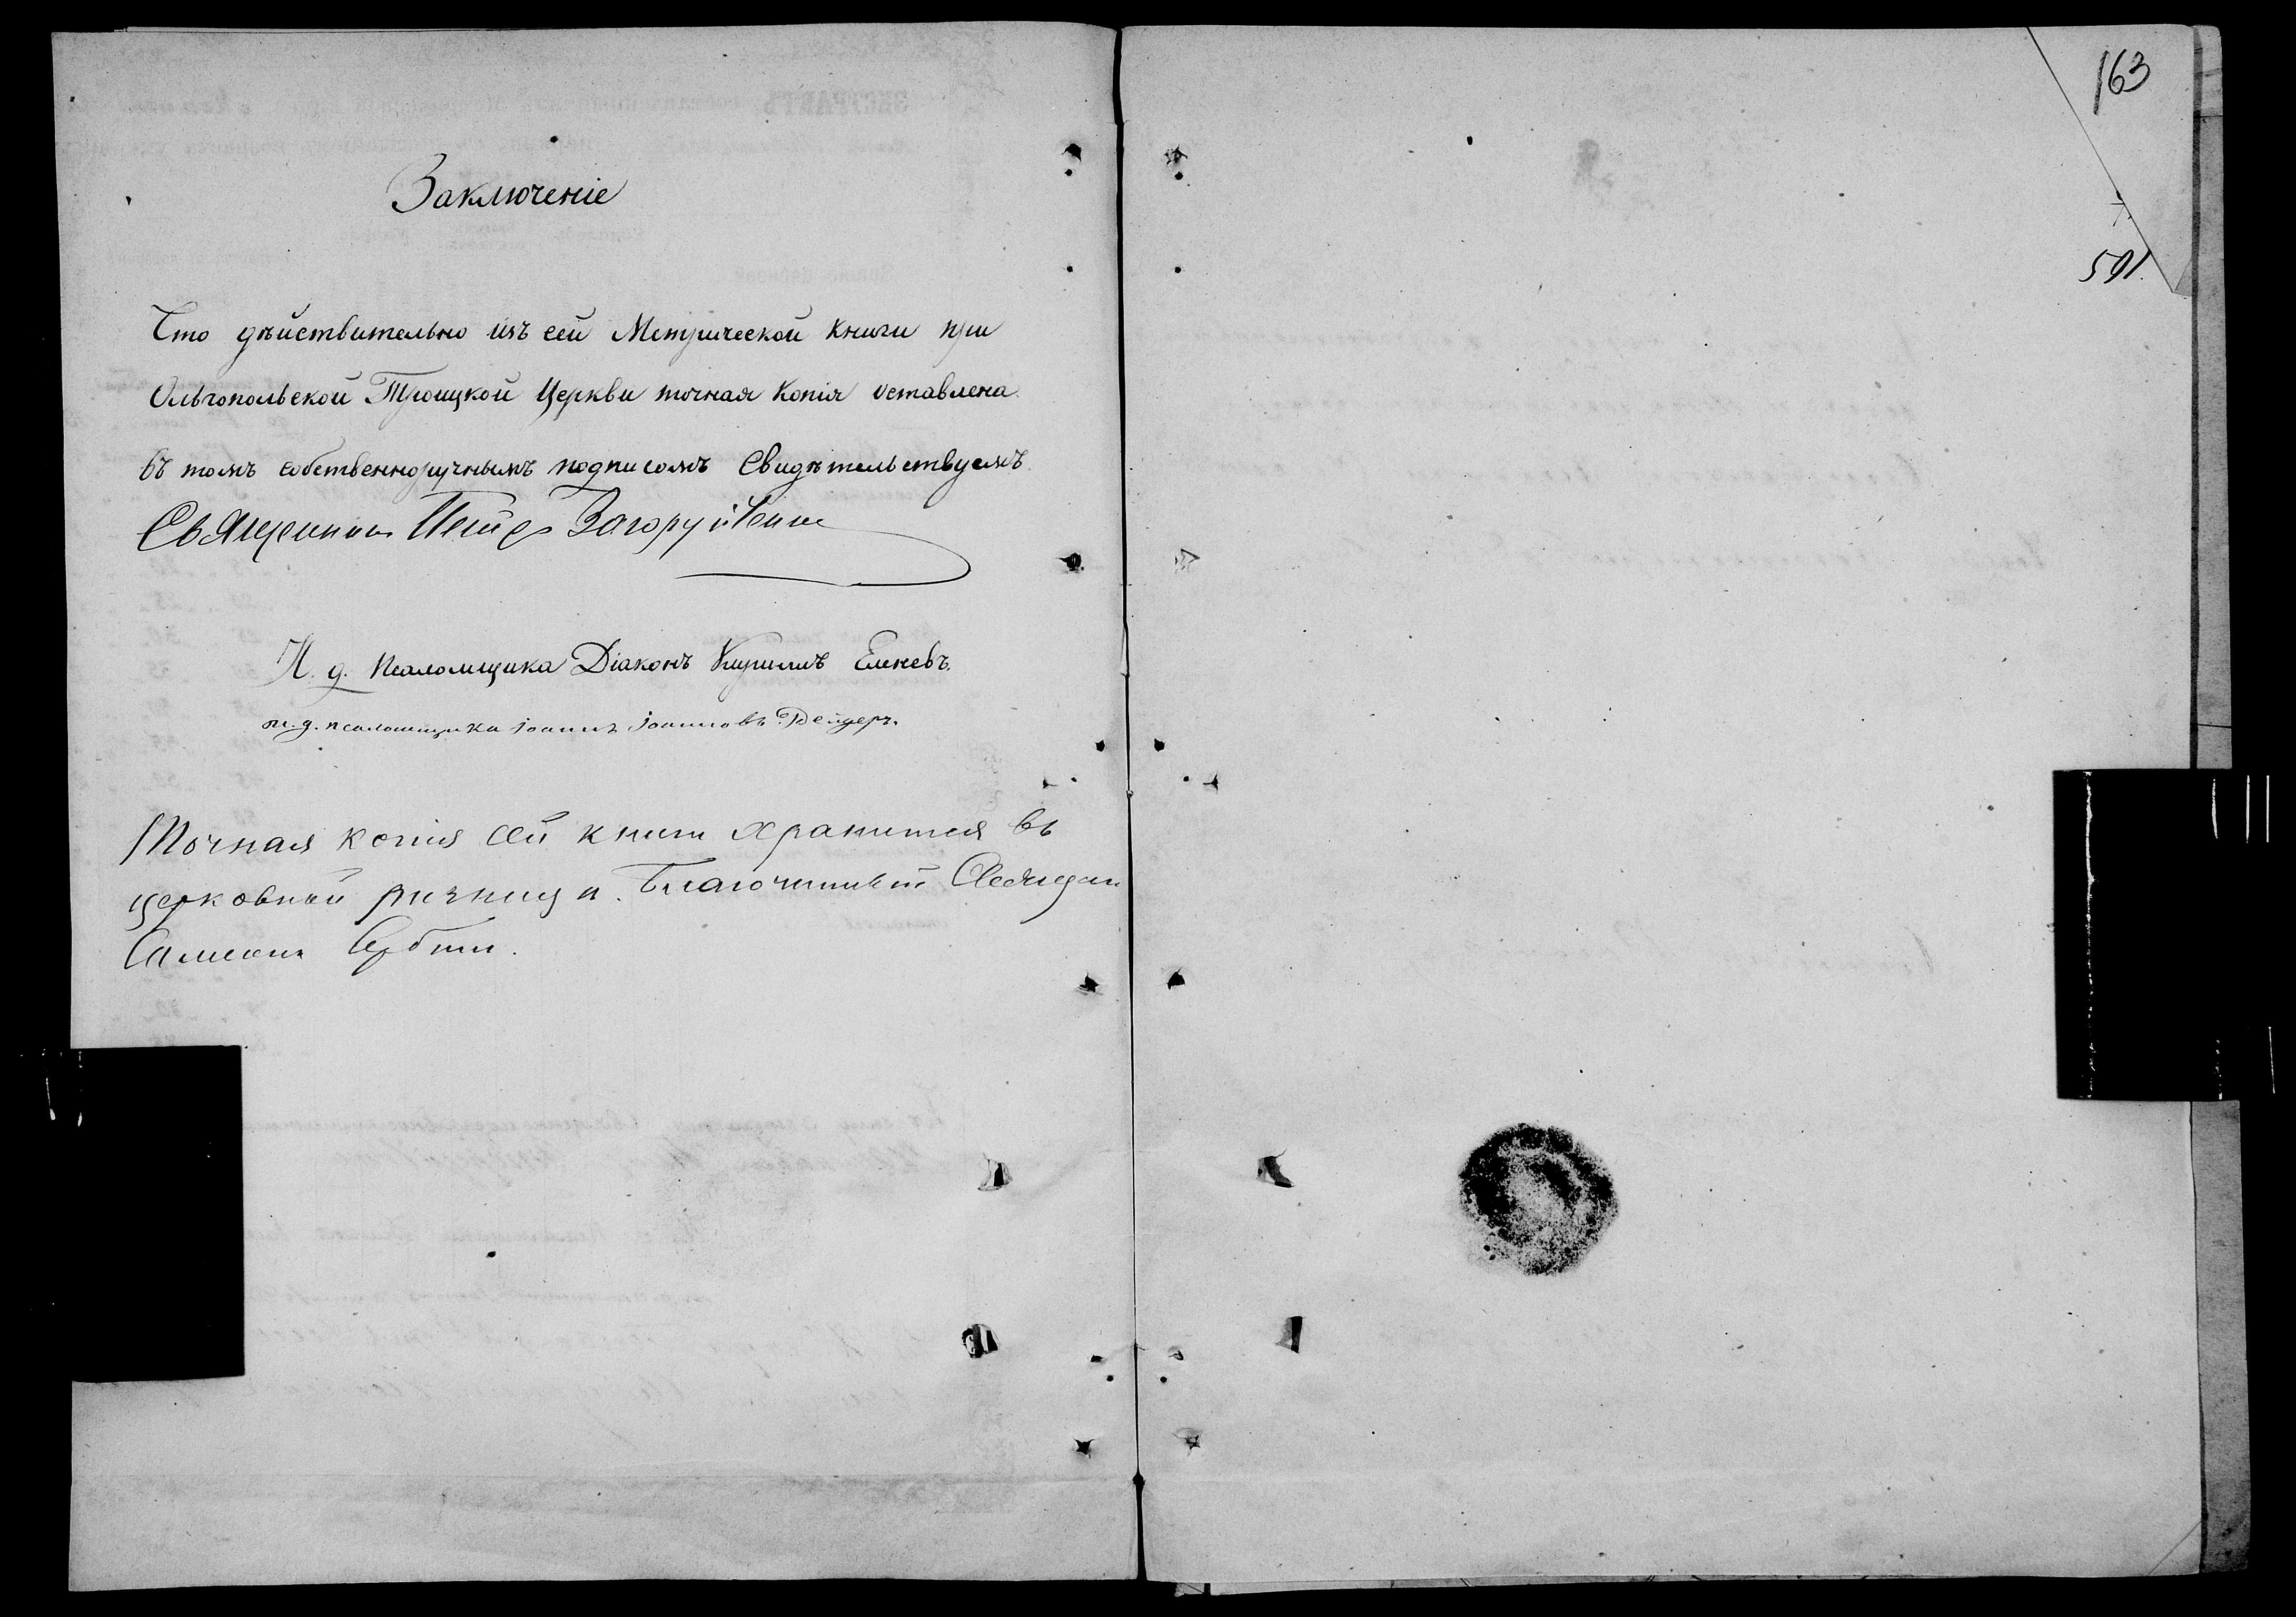 Заключеніе
Что дѣйствительно изъ сей Метрической книги при
Ольгопольской Троицкой Церкви точная копія оставлена
въ томъ собственноручнымъ подписомъ Свидѣтельствуемъ.
Священникъ Петръ Загоруйченко
И. д. псаломщика Діаконъ Кириллъ Еленевъ.
и. д. псаломщика Іоаннъ Іоанновъ
Точная копія сей книги хранится въ
церковной ризницѣ. Благочинный Священ
Симеонъ
163
591.